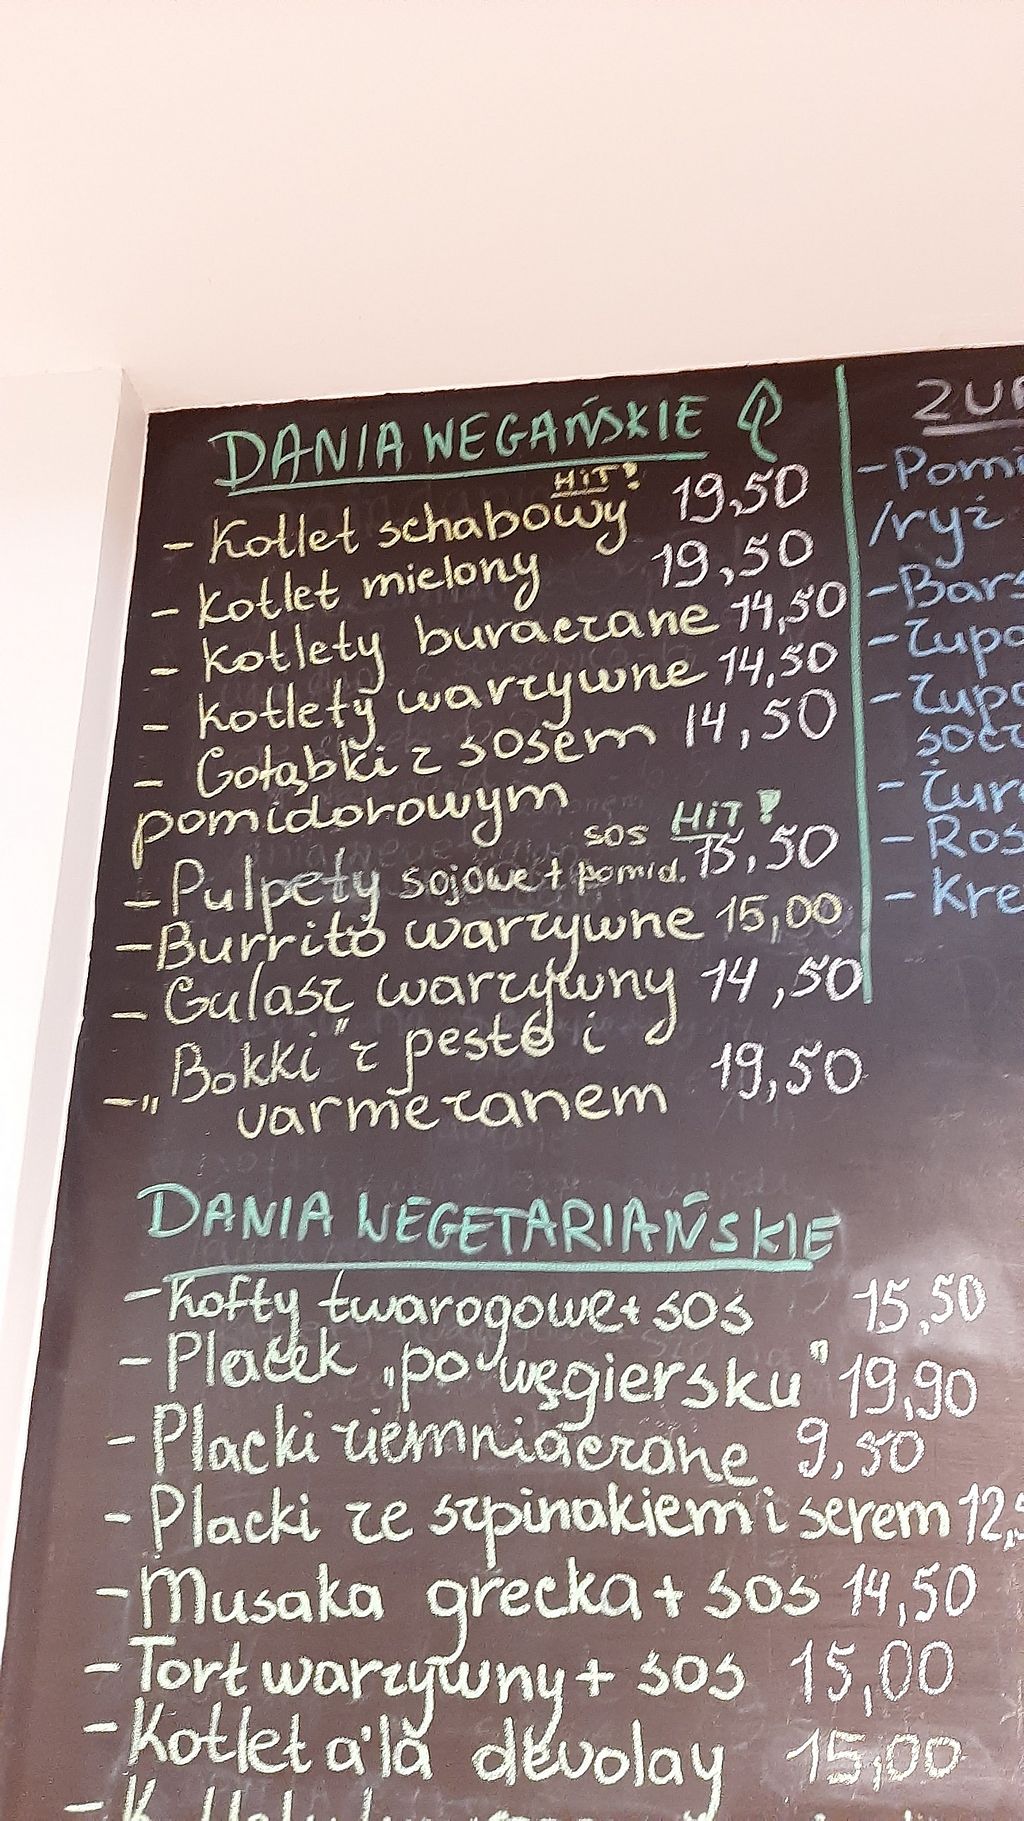 DANIA WEGAŃSKIE
HiT!
- Kotlet schabowy 19,50
- Kotlet mielony 19,50
- Kotlety buraczane 14,50
- Kotlety warzywne 14,50
- Gołąbki z sosem 14,50
pomidorowym
sos HiT!
- Pulpety sojowe + pomid. 15,50
- Burrito warzywne 15,00
- Gulasz warzywny 14,50
- „Bokki" z pesto i
varmezanem 19,50
DANIA WEGETARIAŃSKIE
- Kofty twarogowe + sos 15,50
- Placek „po węgiersku" 19,90
- Placki ziemniaczane 9,50
- Placki ze szpinakiem i serem 12,
- Musaka grecka + sos 14,50
- Tort warzywny + sos 15,00
- Kotlet a'la devolay 15,00
ZUP
- Pomi
/ryż
- Bars
- Zupa
- Zupa
socz
- Żure
- Ros
- Kre